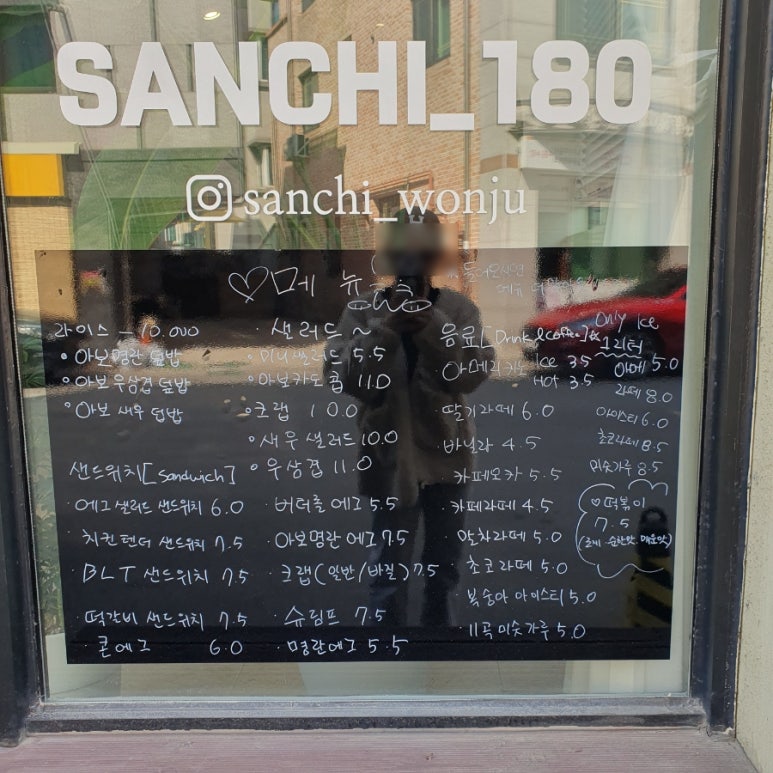 SANCHI_180
sanchi_wonju
♡메뉴
※ 들어오시면
라이스 - 10.000
• 아보명란 덮밥
• 아보 우삼겹 덮밥
• 아보 새우 덮밥
샌드위치[Sandwich]
· 에그 샐러드 샌드위치 6.0
· 치킨텐더 샌드위치 7.5
· BLT 샌드위치 7.5
· 떡갈비 샌드위치 7.5
· 콘에그 6.0
· 샐러드~
• 미니샐러드 5.5
• 아보카도 콥 11.0
• 크랩 10.0
• 새우 샐러드 10.0
• 우삼겹 11.0
· 버터롤 에그 5.5
· 아보명란 에그 7.5
· 크랩(일반/바질) 7.5
· 슈림프 7.5
· 명란에그 5.5
음료[Drink & Coffee]
· 아메리카노 Ice 3.5
Hot 3.5
· 딸기라떼 6.0
· 바닐라 4.5
· 카페모카 5.5
· 카페라떼 4.5
· 말차라떼 5.0
· 초코라떼 5.0
· 복숭아 아이스티 5.0
· 11곡 미숫가루 5.0
Only Ice
☆1리터
아메 5.0
라떼 8.0
아이스티 6.0
초코라떼 8.5
미숫가루 8.5
♡떡볶이
7.5
(로제 순한맛 매운맛)